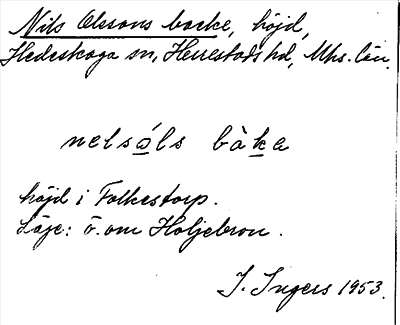 Nils Olssons backe, höjd,
Hedeskoga sn, Herrestads hd, Mhs. län.
nelsóls bàke
höjd i Folkestorp.
Läge: ö. om Höljebron.
I. Ingers 1953.